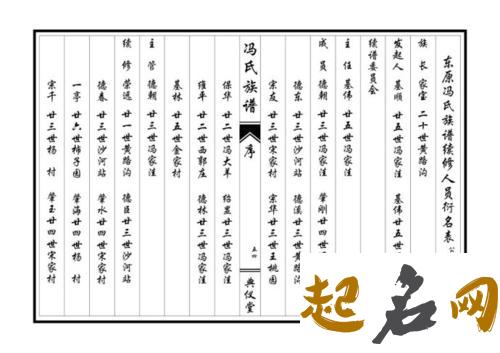 东原冯氏族谱续修人员衍名表
族 长 家宝 二十世黄路沟
发起人 基顺 廿五世冯家洼 基伟 廿五世
续谱委员会
主 任 基伟 廿五世冯家洼
成 员 德朝 廿三世冯家洼 肇刚 廿四世
德东 廿三世沙河站 德溪 廿三世黄
宗友 廿三世宋家村 宗华 廿三世王桃园
冯氏族谱 序 五四 典仪堂
保华 廿二世冯大羊 廿三世冯家洼
维年 廿二世西郭庄 德林 廿三世冯家洼
基林 廿五世金家村
主 管 德朝 廿三世冯家洼
续 修 荣远 廿一世黄路沟 德臣 廿三世沙河站
德春 廿三世沙河站 肇水 廿四世宋家村
一亭 廿六世柿子园 肇海 廿四世杨 村
宗干 廿三世杨 村 肇玉 廿四世宋家村
起名网